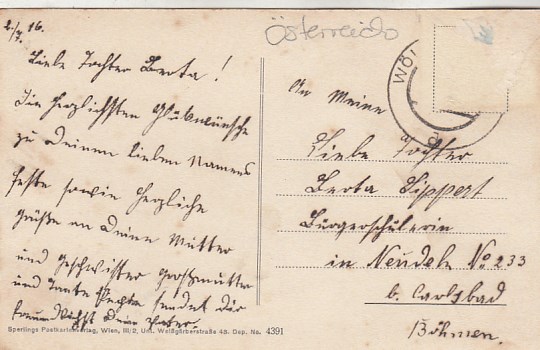 2./7. 16.
Österreich
Liebe Tochter Berta!
Die herzlichsten Glükwünsche
zu Deinem lieben Namens
feste sowie herzliche
Grüße an Deine Mutter
und Geschwister Großmutter
und Tante sendet Dir
Dein Vater.
WÖ
An Meine
Liebe Tochter
Berta Lippert
Bürgerschülerin
in Neudek No 233
b. Carlsbad
Böhmen.
Sperlings Postkartenverlag, Wien, III/2, Unt. Weißgärberstraße 48. Dep. No. 4391